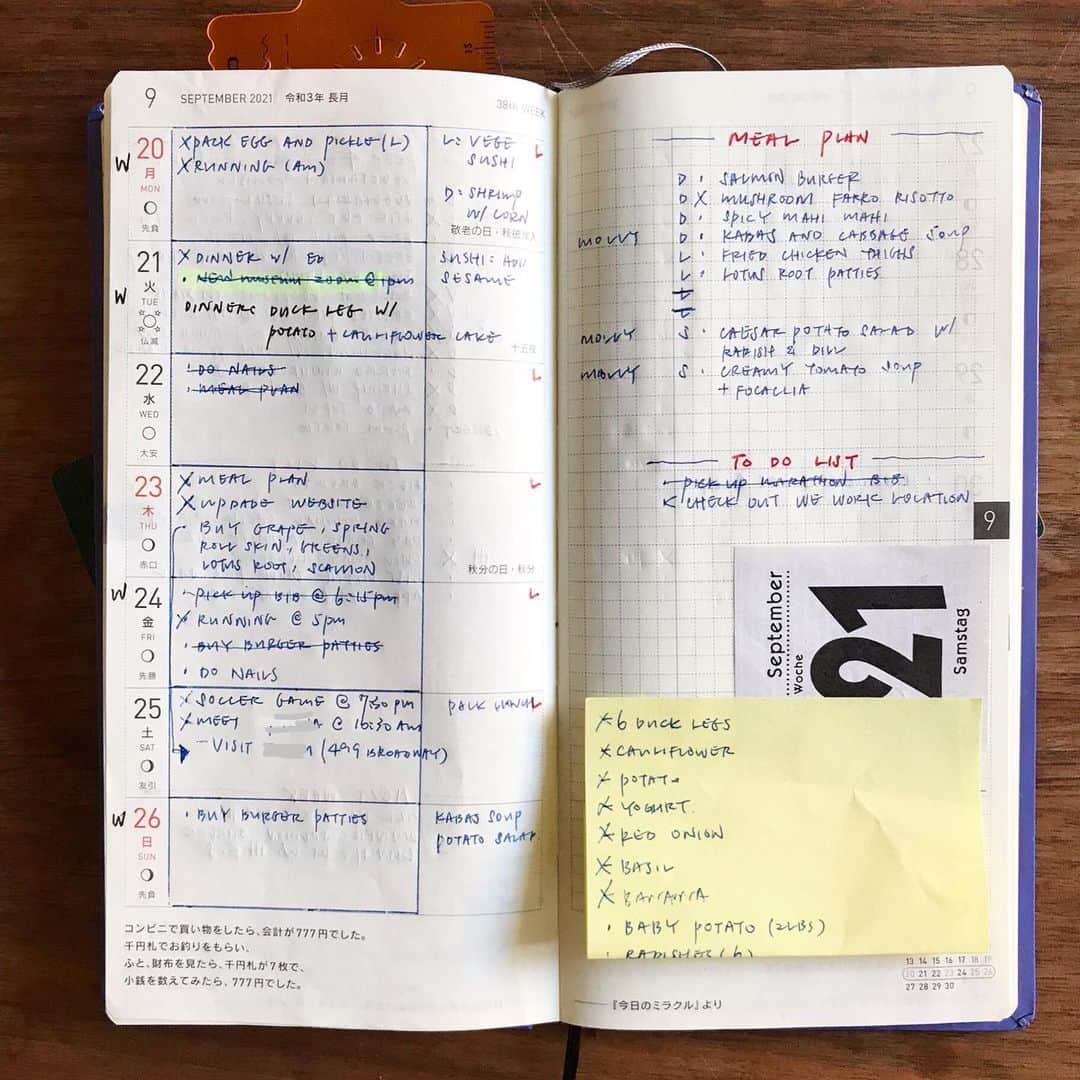 9 SEPTEMBER 2021 令和3年 長月
38th WEEK
W
20
月
MON
先負
X PACK EGG AND PICKLE (L)
X RUNNING (AM)
L: VEGE
SUSHI
L
D: SHRIMP
W/ CORN
敬老の日・秋彼岸入
W
21
火
TUE
仏滅
X DINNER W/ ED
· NEW MUSEUM ZOOM @ 1pm
DINNER: DUCK LEG W/
POTATO + CAULIFLOWER CAKE
SUSHI:
SESAME
十五夜
22
水
WED
大安
· DO NAILS
· MEAL PLAN
L
23
木
THU
赤口
X MEAL PLAN
X UPDADE WEBSITE
BUY GRAPE, SPRING
ROLL SKIN, GREENS,
LOTUS ROOT, SCALLION
L
秋分の日・秋分
W
24
金
FRI
先勝
· PICK UP BIB @ 6:15pm
X RUNNING @ 5pm
· BUY BURGER PATTIES
· DO NAILS
L
25
土
SAT
友引
X SOCCER GAME @ 7:30 PM
X MEET @ 10:30 AM
- VISIT (499 BROADWAY)
PACK LUNCH
L
W
26
日
SUN
先負
· BUY BURGER PATTIES
KABAS SOUP
POTATO SALAD
コンビニで買い物をしたら、会計が777円でした。
千円札でお釣りをもらい、
ふと、財布を見たら、千円札が7枚で、
小銭を数えてみたら、777円でした。
MEAL PLAN
D · SALMON BURGER
D X MUSHROOM FARRO RISOTTO
D · SPICY MAHI MAHI
MOLLY D · KABAS AND CABBAGE SOUP
L · FRIED CHICKEN THIGHS
L · LOTUS ROOT PATTIES
MOLLY S · CAESAR POTATO SALAD W/
RADISH & DILL
MOLLY S · CREAMY TOMATO SOUP
+ FOCACCIA
TO DO LIST
· PICK UP MARATHON BIB
< CHECK OUT WE WORK LOCATION
9
September
Woche
21
Samstag
X 6 DUCK LEGS
X CAULIFLOWER
X POTATO
X YOGURT
X RED ONION
X BASIL
X BATTATTA
· BABY POTATO (2LBS)
· RADISHES (6)
13 14 15 16 17 18 19
20 21 22 23 24 25 26
27 28 29 30
『今日のミラクル』より